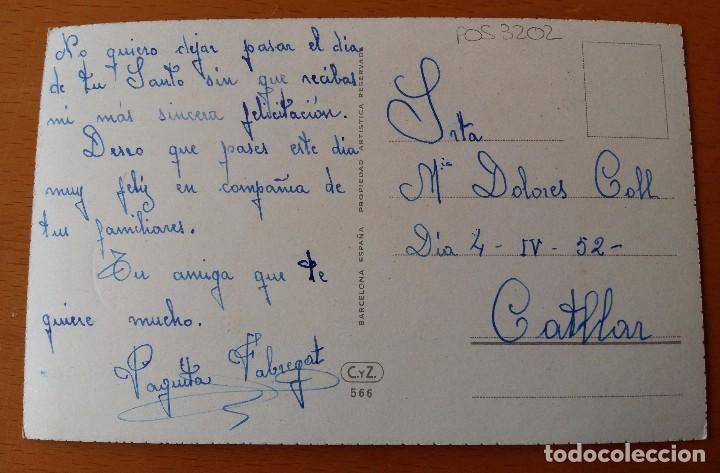 No quiero dejar pasar el dia
de tu Santo sin que recibas
mi más sincera felicitación.
Deseo que pases este dia
muy feliz en compañia de
tus familiares.
Tu amiga que te
quiere mucho.
Paquita Fabregat
BARCELONA ESPAÑA PROPIEDAD ARTISTICA RESERVADA
C.yZ.
566
POS3202
Srta
Mª Dolores Coll
Dia 4 - IV - 52 -
Catllar
todocoleccion